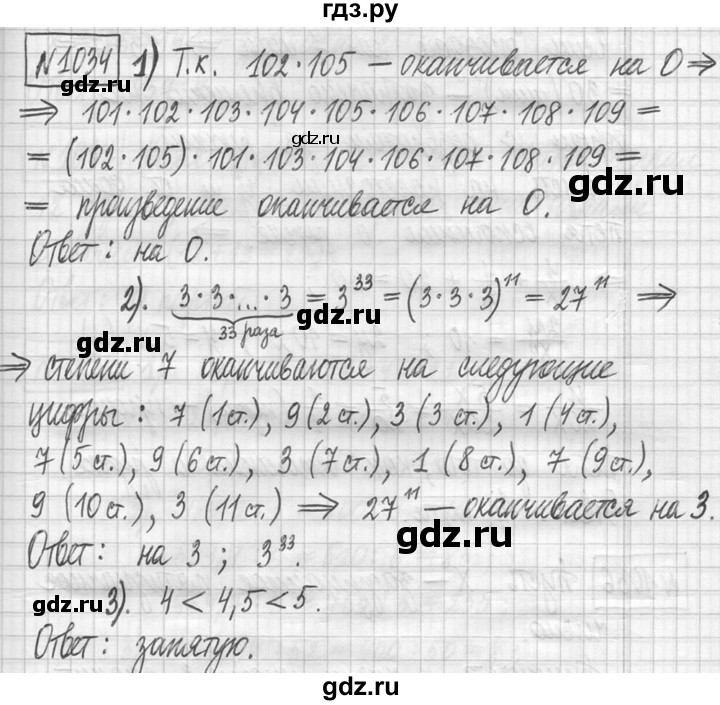 гдз.ру
№1034 1) Т.к. 102·105 – оканчивается на 0 ⇒
⇒ 101·102·103·104·105·106·107·108·109 =
gdz.ru
= (102·105)·101·103·104·106·107·108·109 =
gdz.ru
= произведение оканчивается на 0.
Ответ: на 0.
2). 3·3·...·3 = 3³³ = (3·3·3)¹¹ = 27¹¹ ⇒
33 раза
gdz.ru
gdz.ru
⇒ степени 7 оканчиваются на следующие
цифры: 7 (1ст.), 9 (2 ст.), 3 (3 ст.), 1 (4 ст.),
7 (5 ст.), 9 (6 ст.), 3 (7 ст.), 1 (8 ст.), 7 (9 ст.),
9 (10 ст.), 3 (11 ст.) ⇒ 27¹¹ – оканчивается на 3.
gdz.ru
Ответ: на 3; 3³³.
gdz.ru
3). 4 < 4,5 < 5.
Ответ: запятую.
gdz.ru
gdz.ru